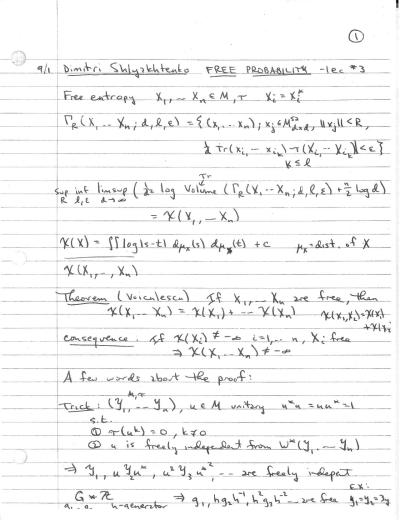 ①
9/1 Dimitri Shlyakhtenko FREE PROBABILITY - lec #3
Free entropy X₁, ~ Xₙ ∈ M, τ Xᵢ = Xᵢ*
Γ_R(X₁ ... Xₙ; d, l, ε) = {(x₁ ... xₙ); xⱼ ∈ M^{sa}_{d×d}, ||xⱼ|| < R,
|1/d Tr(x_{i₁} ... x_{i_k}) - τ(X_{i₁} ... X_{i_k})| < ε}
k ≤ l
Tr
sup inf limsup (1/d² log Volume (Γ_R(X₁ ... Xₙ; d, l, ε) + n/2 log d)
R l, ε d→∞
= χ(X₁, ... Xₙ)
χ(X) = ∬ log|s-t| dμₓ(s) dμₓ(t) + c μₓ = dist. of X
χ(X₁, ..., Xₙ)
Theorem (Voiculescu) If X₁, ... Xₙ are free, then
χ(X₁ ... Xₙ) = χ(X₁) + ... χ(Xₙ) χ(X₁,X₂) = χ(X₁)
+ χ(X₂)
consequence. If χ(Xᵢ) ≠ -∞ i=1, .. n, Xᵢ free
⇒ χ(X₁ ... Xₙ) ≠ -∞
A few words about the proof:
M, τ
Trick: (Y₁, ... Yₙ), u ∈ M unitary u*u = uu* = 1
s.t.
① τ(uᵏ) = 0, k ≠ 0
② u is freely independent from W*(Y₁ ... Yₙ)
⇒ Y₁, uY₂u*, u²Y₃u*², ... are freely indepent.
Ex:
G * ℤ ⇒ g₁, hg₂h⁻¹, h²g₃h⁻² ... are free g₁=g₂=g₃
h-generator